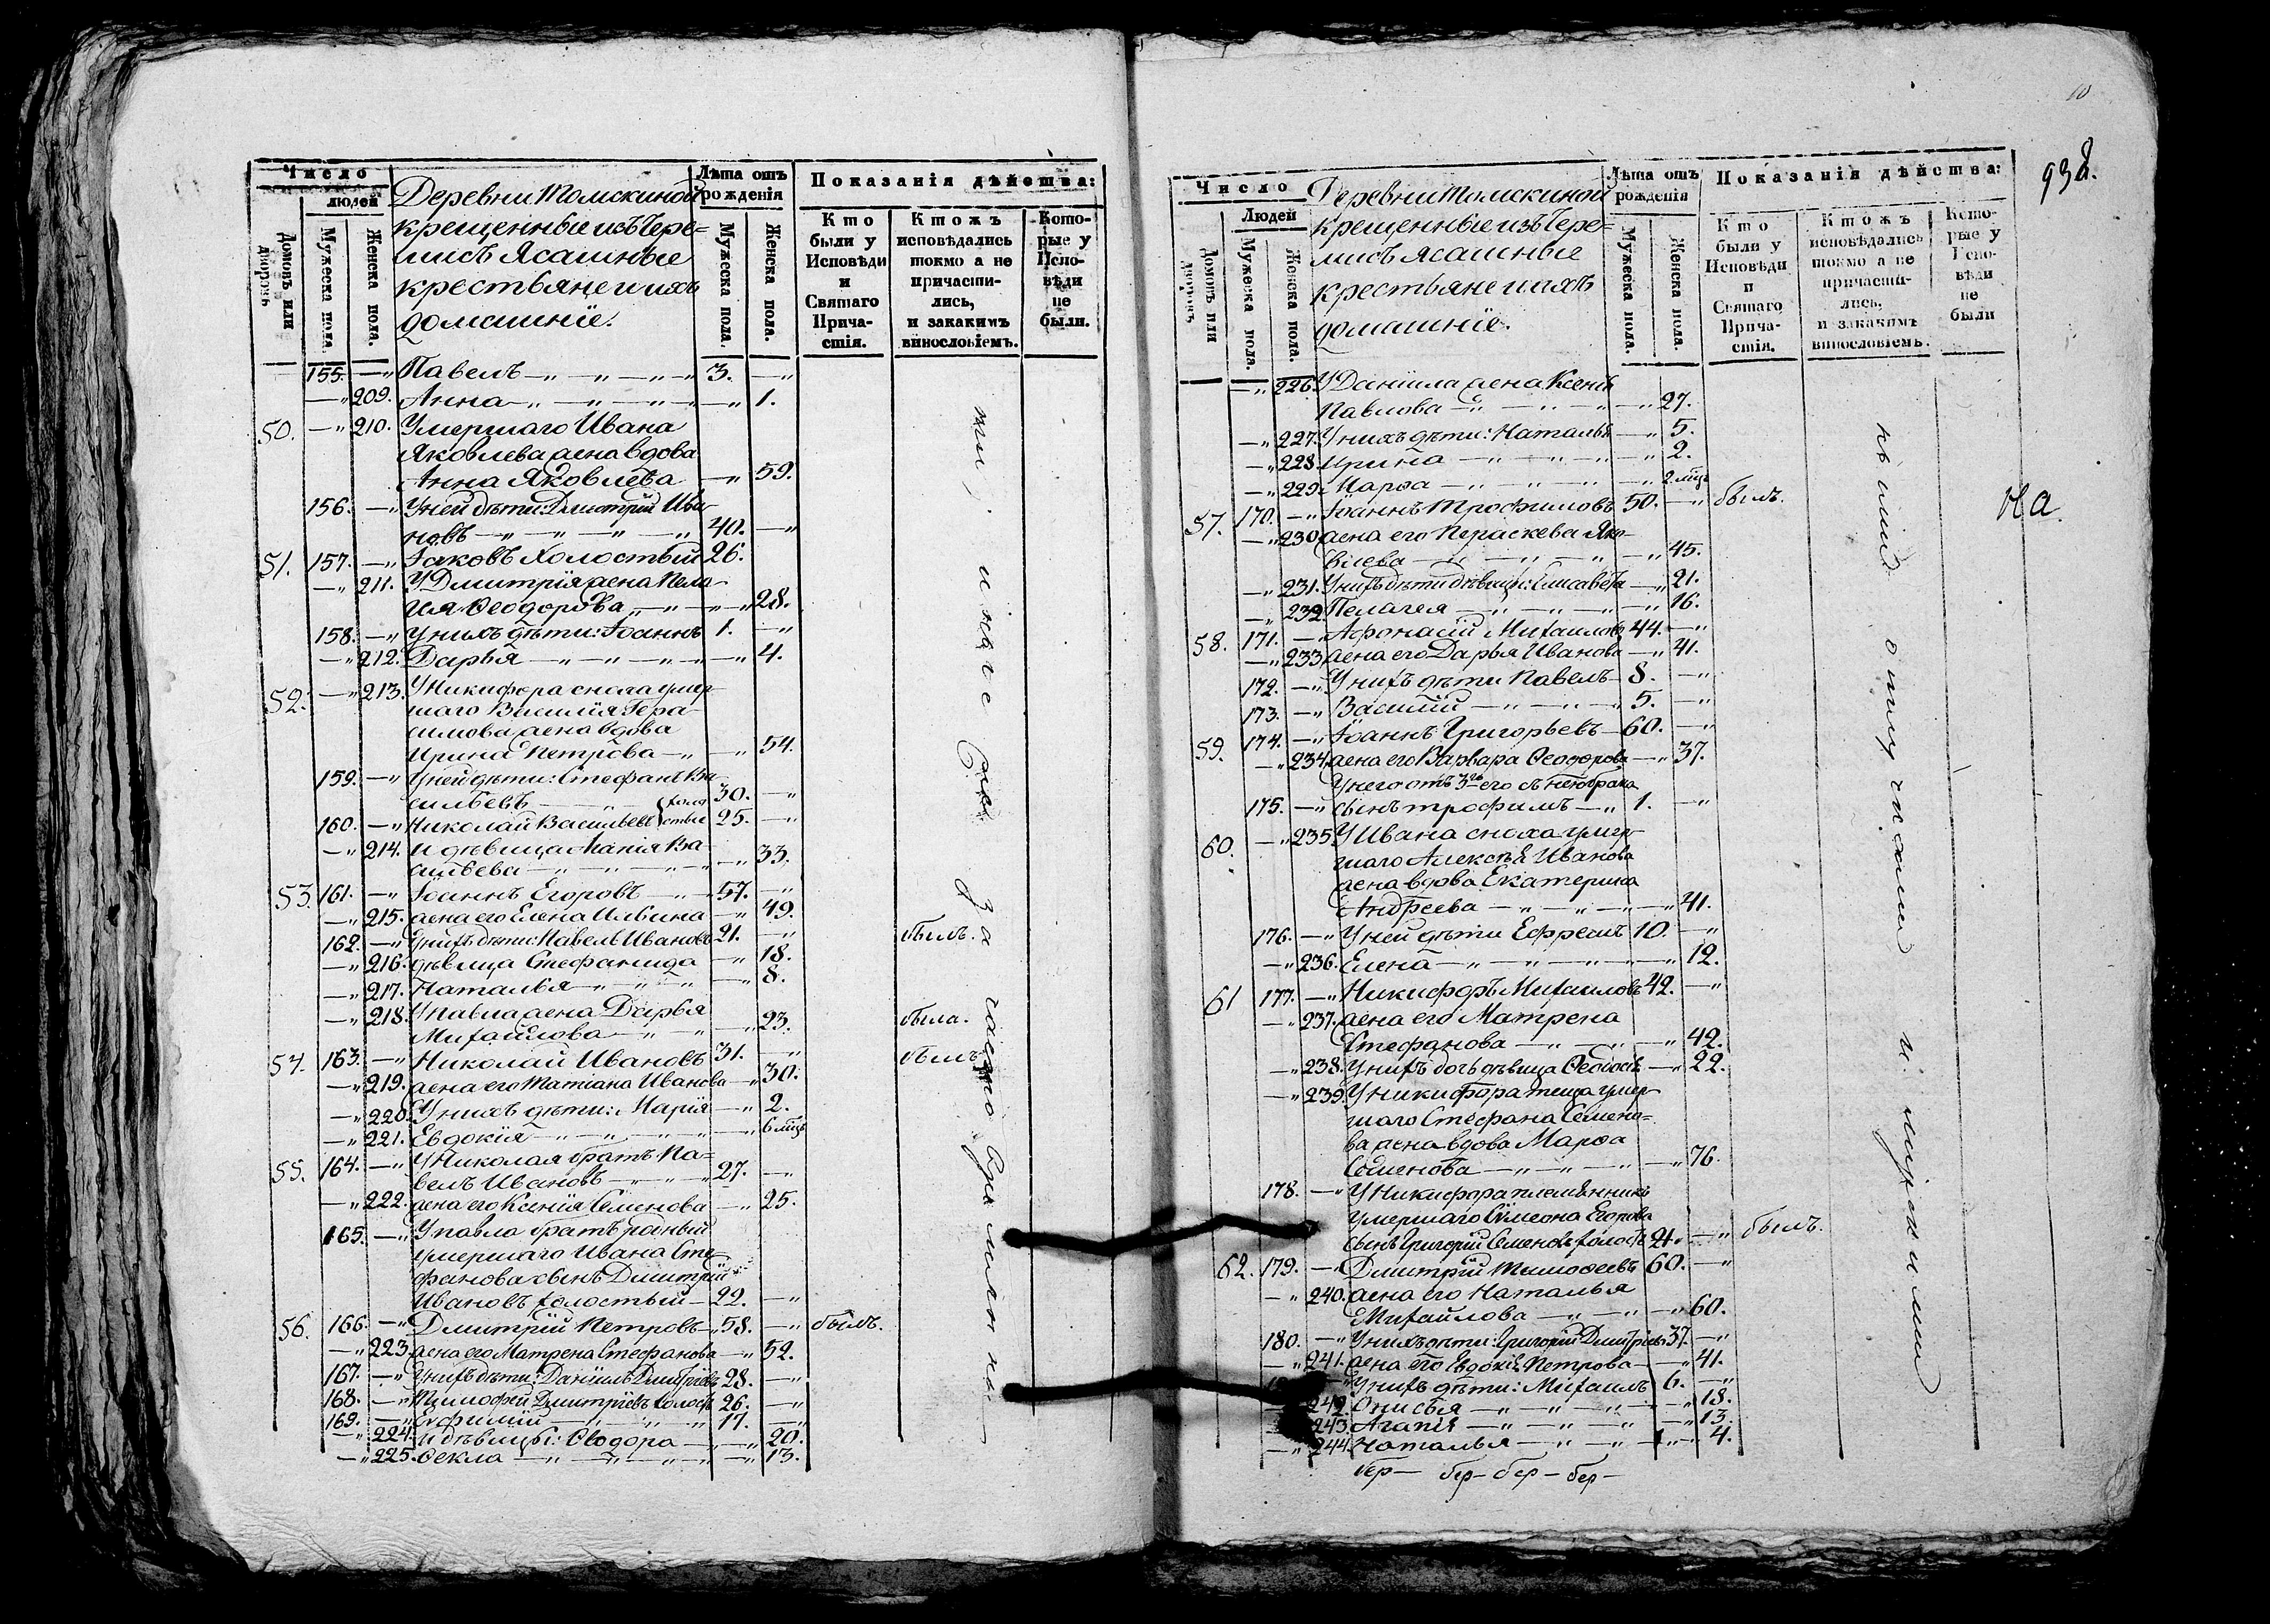 Число
людей
Домовъ или дворовъ
Мужеска пола.
Женска пола.
Деревни Томскиной
крещенные изъ Чере=
мисъ Ясашные
крестьяне и ихъ
домашніе.
Лѣта отъ
рожденія
Мужеска пола.
Женска пола.
Показанія дѣйства:
Кто
были у
Исповѣди
и
Святаго
Прича-
стія.
Ктожъ
исповѣдались
токмо а не
причасти-
лись,
и закакимъ
винословіемъ.
Кото-
рые у
Испо-
вѣди
не
были.
155. —„ Павелъ —„ —„ —„ 3. —„
—„ 209. Анна —„ —„ —„ —„ 1.
50. —„ 210. Умершаго Ивана
Яковлева жена вдова
Анна Яковлева —„ 59.
156. —„ У ней дѣти: Дмитрій Ива-
новъ —„ —„ —„ 40. —„
51. 157. —„ Іаковъ холостый 26.
—„ 211. У Дмитрія жена Пела-
гия Ѳеодорова —„ —„ 28.
158. —„ У нихъ дѣти: Іоаннъ 1. —„
—„ 212. Дарья —„ —„ —„ —„ 4.
52. —„ 213. У Никифора сноха умер-
шаго Василія Гера-
симова жена вдова
Ирина Петрова —„ —„ 54.
159. —„ У ней дѣти: Стефанъ Ва-
сильевъ 30. —„
160. —„ Николай Васильевъ холостые 25. —„
—„ 214. и дѣвица Ва-
сильева —„ —„ —„ 33.
53. 161. —„ Іоаннъ Егоровъ —„ 57. —„
—„ 215. жена его Елена Ильина —„ 49.
162. —„ У нихъ дѣти: Павелъ Ивановъ 21. —„ былъ.
—„ 216. дѣвица Стефанида —„ 18.
—„ 217. Наталья —„ —„ —„ 8.
—„ 218. У Павла жена Дарья
Михайлова —„ —„ 23. была.
54. 163. —„ Николай Ивановъ 31. —„ былъ
—„ 219. жена его Татиана Иванова —„ 30.
—„ 220. У нихъ дѣти: Марія —„ 2.
—„ 221. Евдокія —„ —„ —„ 6 мцъ
55. 164. —„ У Николая братъ Па=
велъ Ивановъ —„ —„ 27. —„
—„ 222. жена его Ксенія Семенова —„ 25.
165. —„ У Павла братъ
умершаго Ивана Сте-
фанова сынъ Дмитрій
Ивановъ холостый — 22. —„
56. 166. —„ Дмитрій Петровъ —„ 58. —„ былъ.
—„ 223. жена его Матрена Стефанова —„ 52.
167. —„ У нихъ дѣти: Даніилъ Дмитріевъ 28. —„
168. —„ Тимофей Дмитріевъ холостъ 26. —„
169. —„ Евфимій —„ —„ —„ 17. —„
—„ 224. и дѣвицы: Ѳеодора —„ —„ 20.
—„ 225. Ѳекла —„ —„ —„ —„ 13.
938.
Число
Людей
Домовъ или дворовъ
Мужеска пола.
Женска пола.
Деревни Томскиной
крещенные изъ Чере=
мисъ Ясашные
крестьяне и ихъ
домашніе.
Лѣта отъ
рожденія
Мужеска пола.
Женска пола.
Показанія дѣйства:
Кто
были у
Исповѣди
и
Святаго
Прича-
стія.
Ктожъ
исповѣдались
токмо а не
причасти-
лись,
и закакимъ
винословіемъ.
Кото-
рые у
Испо-
вѣди
не
были
—„ 226. У Даніила жена Ксенія
Павлова —„ —„ —„ —„ 27.
—„ 227. У нихъ дѣти: Наталья —„ 5.
—„ 228. Ирина —„ —„ —„ —„ 2.
—„ 229. Марѳа —„ —„ —„ —„ 2 мцъ
57. 170. —„ Іоаннъ Трофимовъ 50. —„ былъ.
На
—„ 230 жена его Параскева Яко-
влева —„ —„ —„ 45.
—„ 231. У нихъ дѣти дѣвицы: Елисавета —„ 21.
—„ 232. Пелагея —„ —„ —„ —„ 16.
58. 171. —„ Афонасій Михайловъ 44. —„
—„ 233 жена его Дарья Иванова —„ 41.
172. —„ У нихъ дѣти Павелъ — 8. —„
173. —„ Василій —„ —„ —„ 5. —„
59. 174. —„ Іоаннъ Григорьевъ — 60. —„
—„ 234. жена его Варвара Ѳеодорова —„ 37.
У него отъ 3го его съ нею брака
175. —„ сынъ Трофимъ —„ 1. —„
60. —„ 235. У Ивана сноха умер-
шаго Алексѣя Иванова
жена вдова Екатерина
Андреева —„ —„ —„ —„ 41.
176. —„ У ней дѣти Ефремъ 10. —„
—„ 236. Елена —„ —„ —„ —„ 12.
61 177. —„ Никифоръ Михайловъ 42. —„
—„ 237. жена его Матрена
Стефанова —„ —„ —„ 42.
—„ 238. У нихъ дочь дѣвица Ѳеодосія —„ 22.
—„ 239. У Никифора теща умер-
шаго Стефана Семено=
ва жена вдова Марѳа
Семенова —„ —„ —„ 76.
178. —„ У Никифора племянникъ
умершаго Симеона Егорова
сынъ Григорій Семеновъ холостъ 21. —„ былъ.
62. 179. —„ Дмитрій Тимофеевъ 60. —„
—„ 240. жена его Наталья
Михайлова —„ —„ —„ 60.
180. —„ У нихъ дѣти: Григорій Дмитріевъ 37. —„
—„ 241. жена его Евдокія Петрова —„ 41.
—„ У нихъ дѣти: Михаилъ 6. —„
242. Онисья —„ —„ —„ —„ 18.
243. Агапія —„ —„ —„ —„ 13.
—„ 244. Наталья —„ —„ —„ 4.